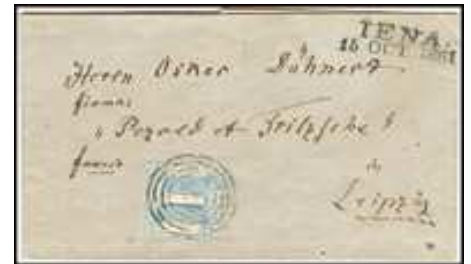 IENA
15 OCT 1861
Herrn Oskar Dähnert
firma:
"Pezold & Fritzsche"
franco
in
Leipzig